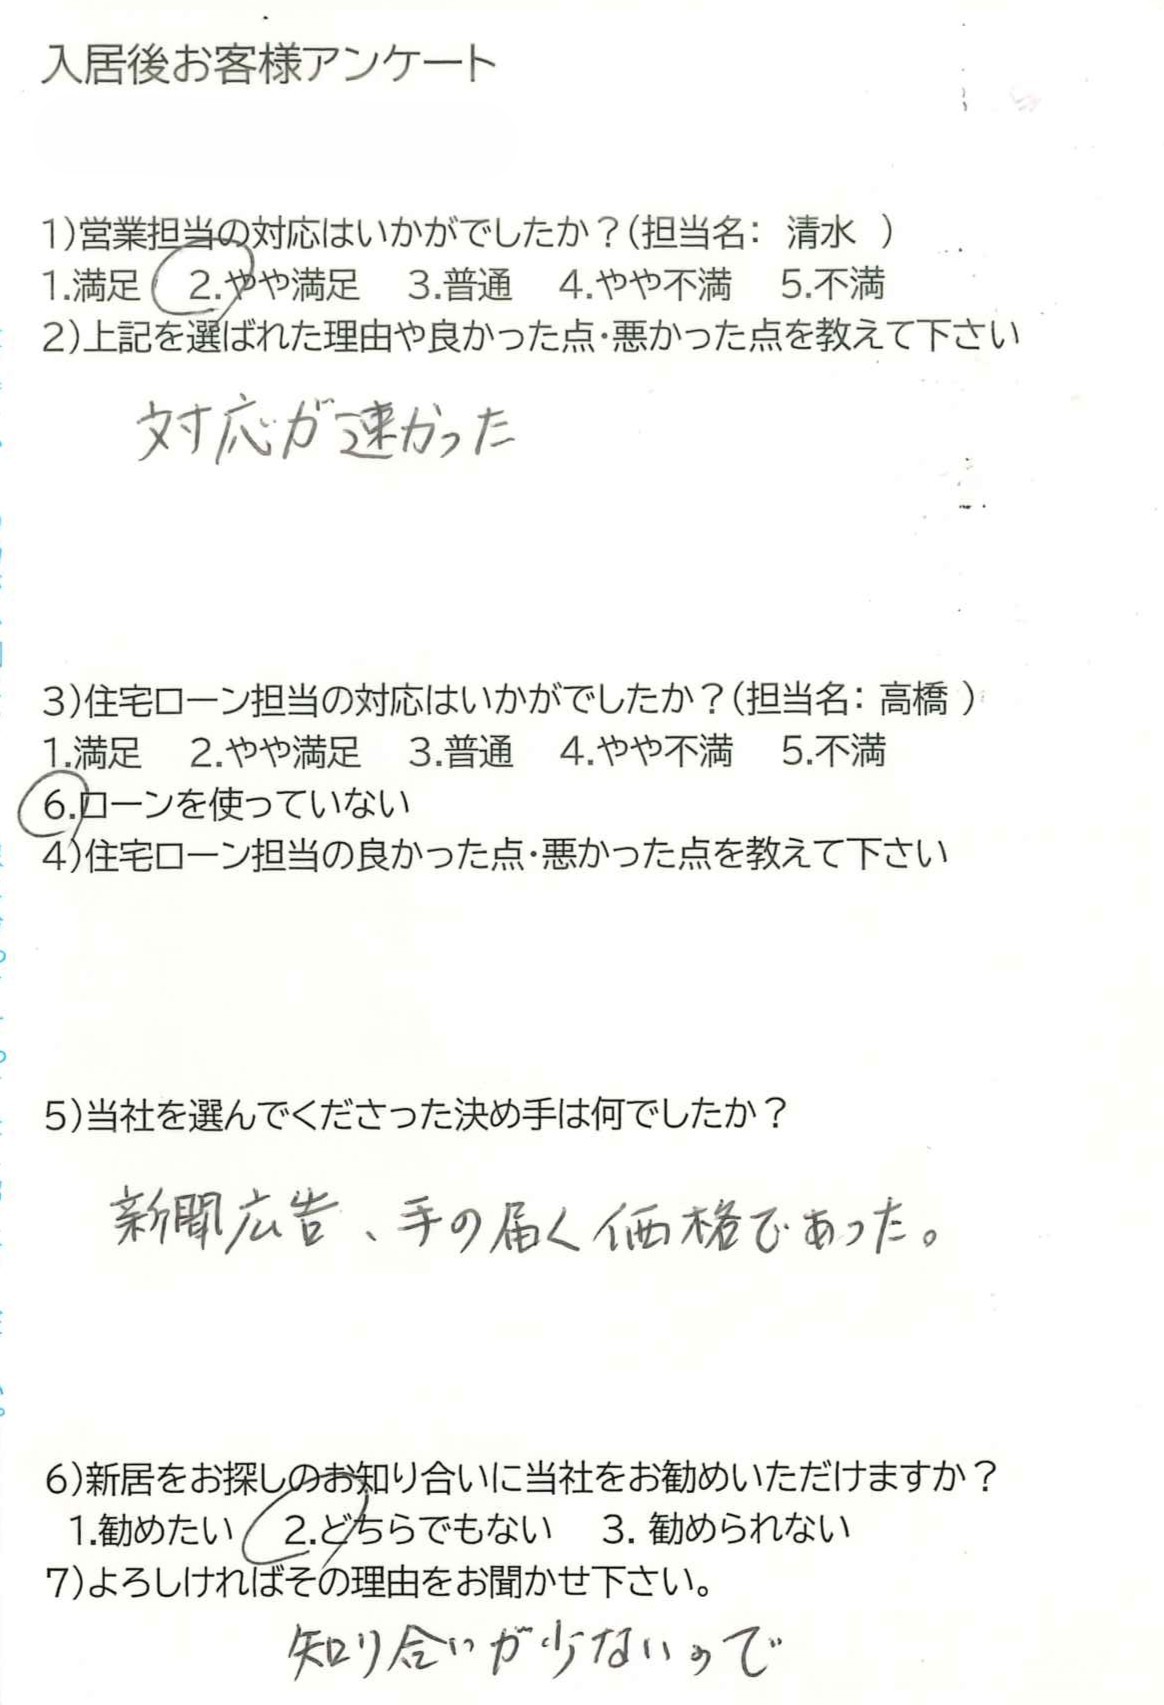 入居後お客様アンケート
1)営業担当の対応はいかがでしたか？(担当名： 清水 )
1.満足 2.やや満足 3.普通 4.やや不満 5.不満
2)上記を選ばれた理由や良かった点・悪かった点を教えて下さい
対応が速かった
3)住宅ローン担当の対応はいかがでしたか？(担当名： 高橋 )
1.満足 2.やや満足 3.普通 4.やや不満 5.不満
6.ローンを使っていない
4)住宅ローン担当の良かった点・悪かった点を教えて下さい
5)当社を選んでくださった決め手は何でしたか？
新聞広告、手の届く価格であった。
6)新居をお探しのお知り合いに当社をお勧めいただけますか？
1.勧めたい 2.どちらでもない 3. 勧められない
7)よろしければその理由をお聞かせ下さい。
知り合いが少ないので